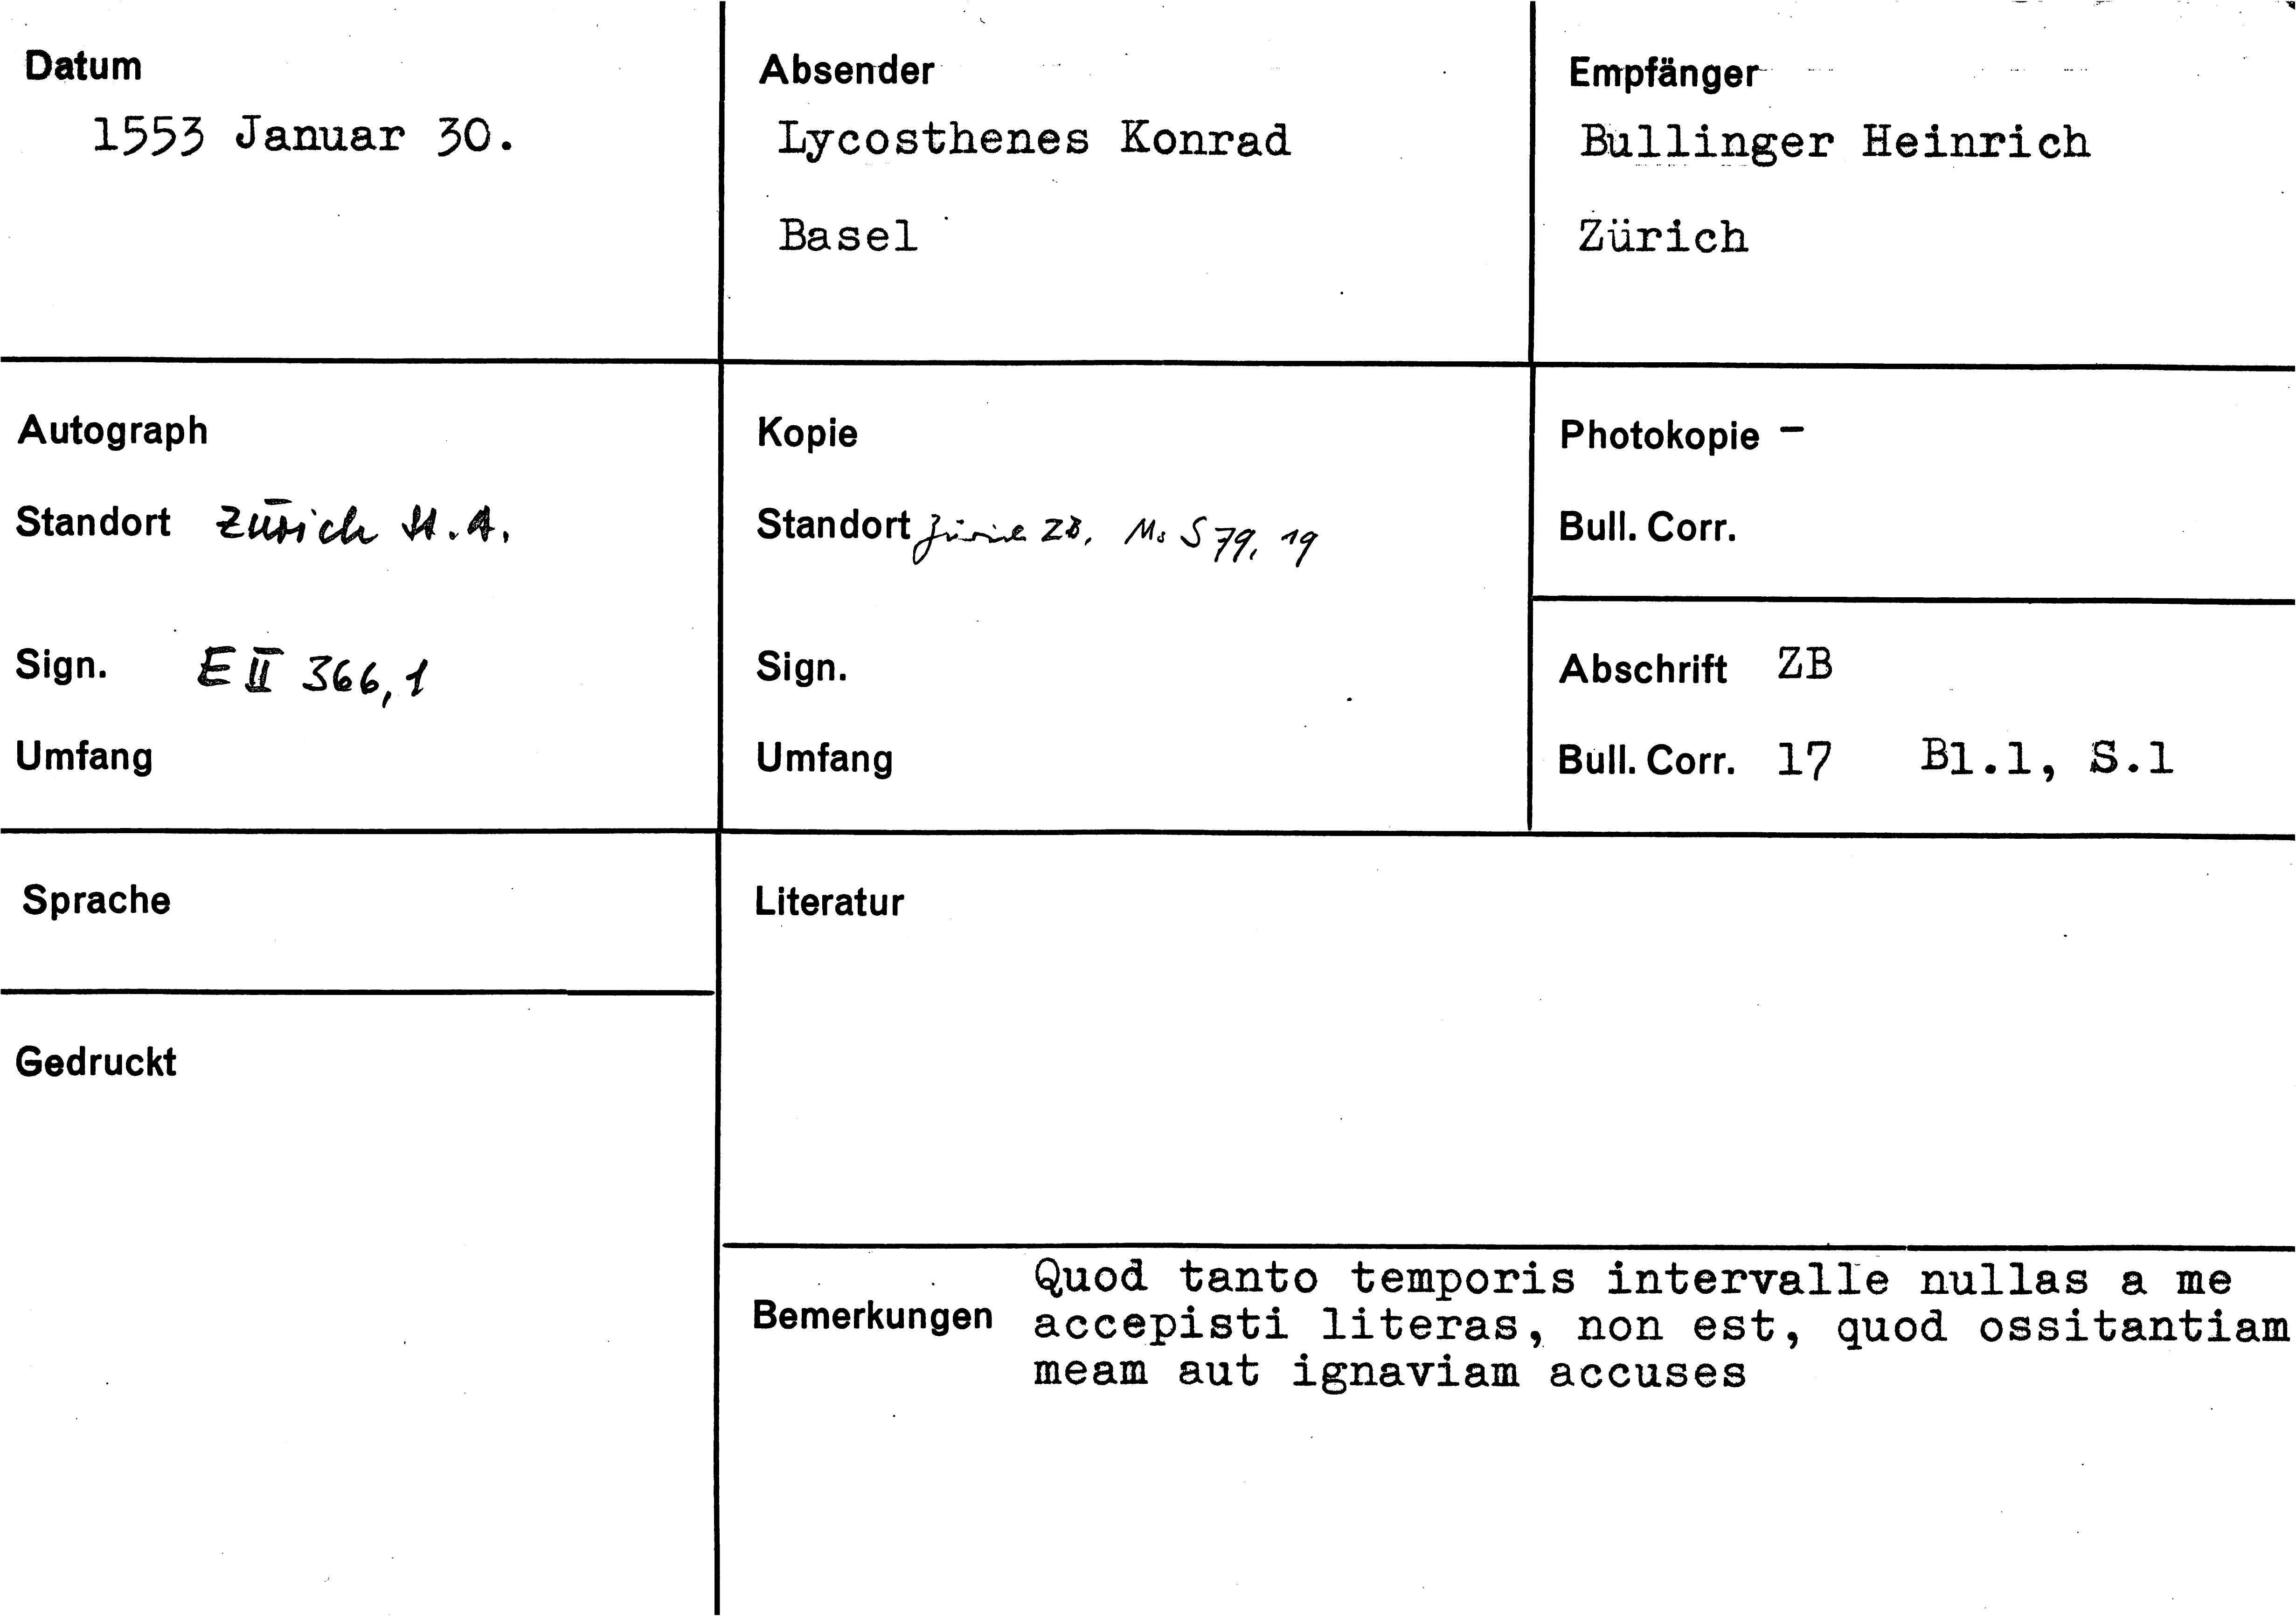 Datum
1553 Januar 30.
Absender
Lycosthenes Konrad
Basel
Empfänger
Bullinger Heinrich
Zürich
Autograph
Standort Zürich St.A.
Sign. E II 366,1
Umfang
Kopie
Standort Zürich ZB, Ms S 79, 19
Sign.
Umfang
Photokopie -
Bull. Corr.
Abschrift ZB
Bull. Corr. 17 Bl.1, S.1
Sprache
Gedruckt
Literatur
Bemerkungen
Quod tanto temporis intervalle nullas a me
accepisti literas, non est, quod ossitantiam
meam aut ignaviam accuses